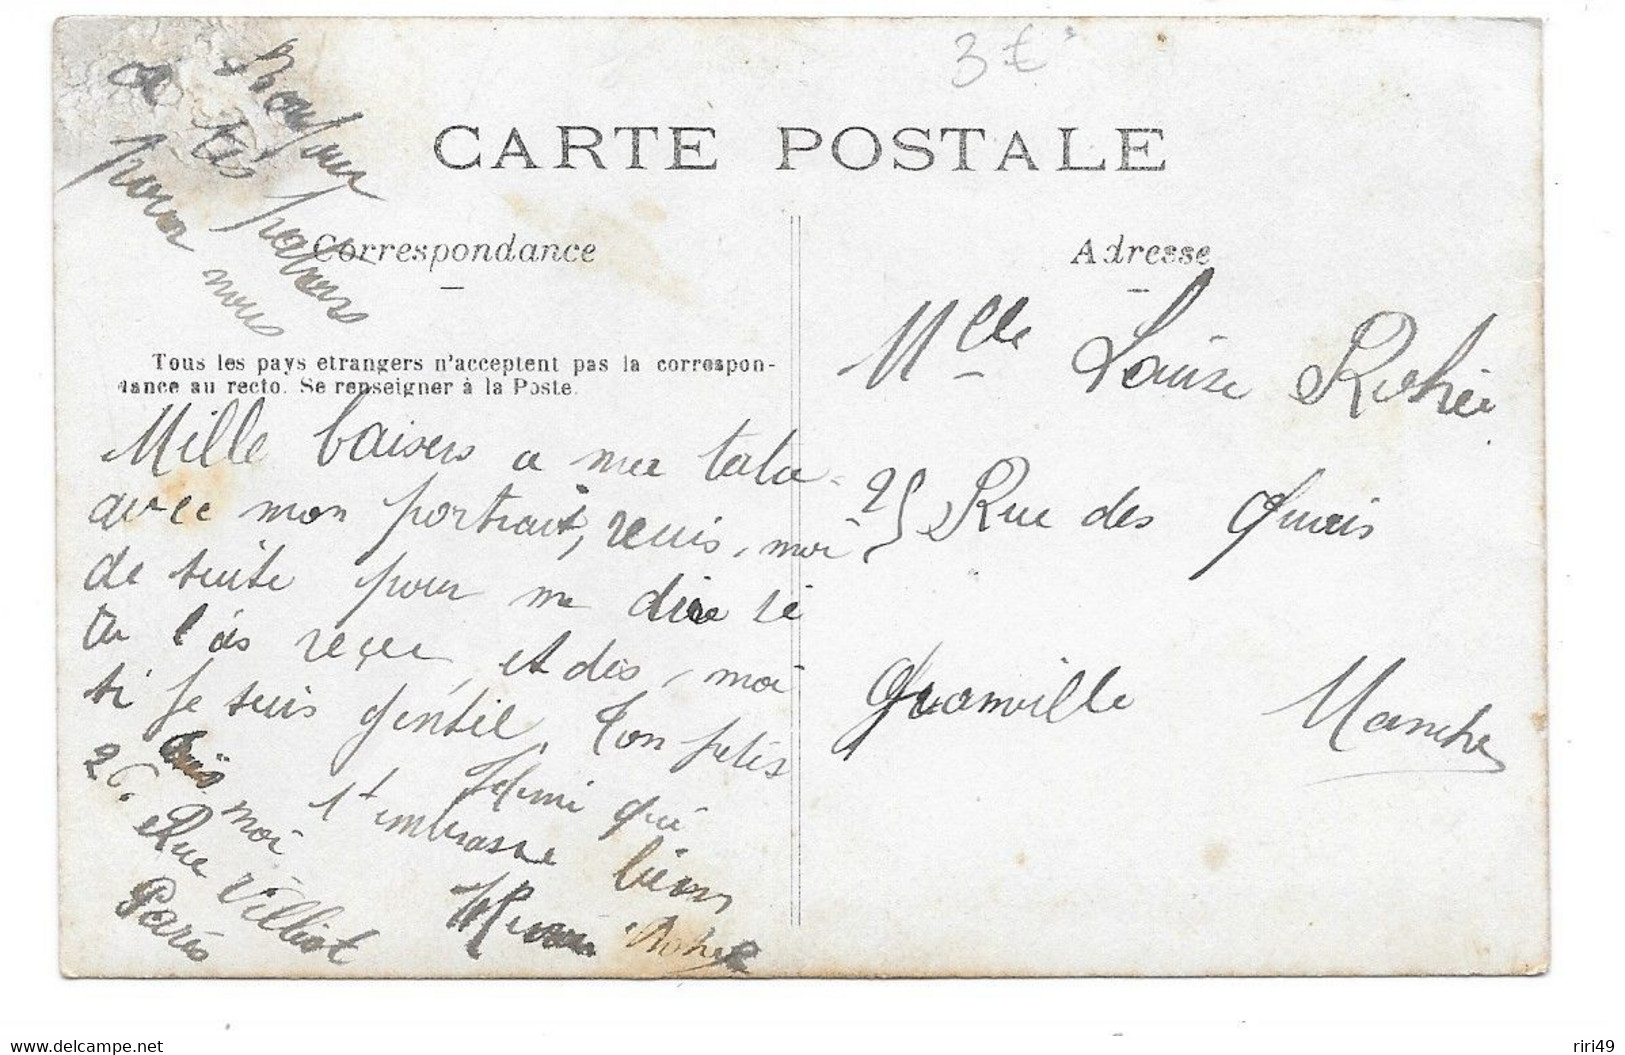 3 €
CARTE POSTALE
Bonjour
à tes
pour nous
Correspondance
Adresse
Tous les pays etrangers n'acceptent pas la correspon-
dance au recto. Se renseigner à la Poste.
Mille baisers a ma tata
avec mon portrait, , moi
de suite pour me dire si
tu l'as reçue, et dis, moi
si je suis gentil. Ton petis
qui
t'embrasse bien
moi
26. Rue Villiot
Paris
Mlle Louise
25 Rue des Quais
Granville Manche
delcampe.net
riri49